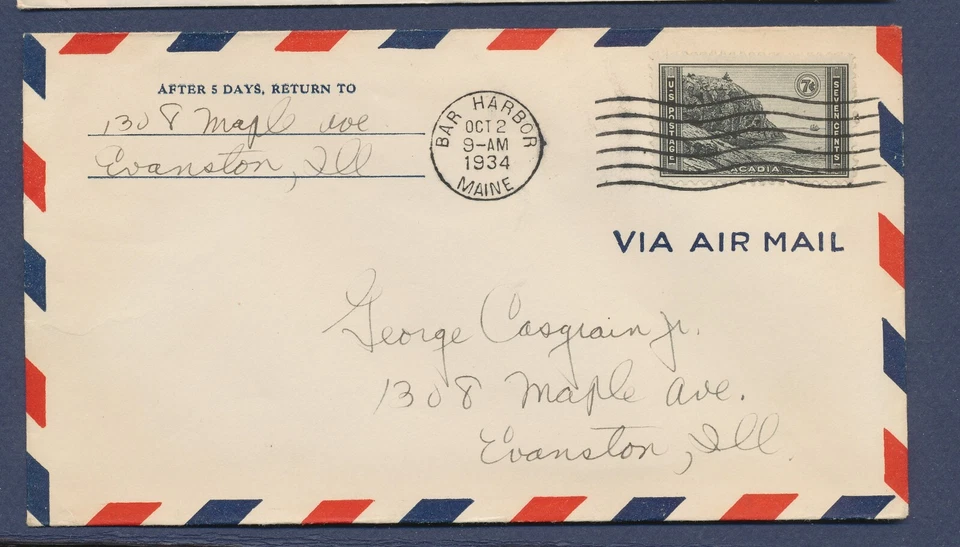 AFTER 5 DAYS, RETURN TO
1308 Maple Ave
Evanston, Ill
BAR HARBOR
OCT 2
9-AM
1934
MAINE
U.S. POSTAGE
7¢
SEVEN CENTS
ACADIA
VIA AIR MAIL
George Casgrain Jr.
1308 Maple Ave.
Evanston, Ill.